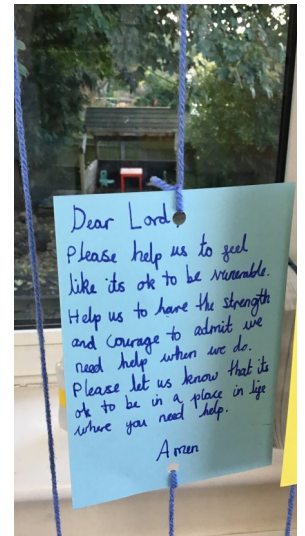 Dear Lord
Please help us to feel
like its ok to be vunerable.
Help us to have the strength
and courage to admit we
need help when we do.
Please let us know that its
ok to be in a place in life
where you need help.
Amen